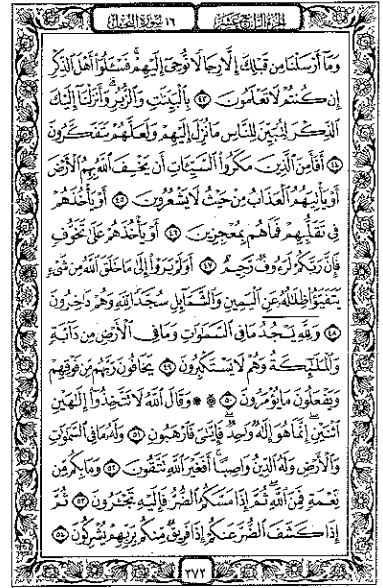 الجزء الرابع عشر
١٦ سورة النحل
وَمَآ أَرْسَلْنَا مِن قَبْلِكَ إِلَّا رِجَالًا نُّوحِىٓ إِلَيْهِمْ فَسْـَٔلُوٓا۟ أَهْلَ ٱلذِّكْرِ
إِن كُنتُمْ لَا تَعْلَمُونَ ٤٣ بِٱلْبَيِّنَـٰتِ وَٱلزُّبُرِ وَأَنزَلْنَآ إِلَيْكَ
ٱلذِّكْرَ لِتُبَيِّنَ لِلنَّاسِ مَا نُزِّلَ إِلَيْهِمْ وَلَعَلَّهُمْ يَتَفَكَّرُونَ
٤٤ أَفَأَمِنَ ٱلَّذِينَ مَكَرُوا۟ ٱلسَّيِّـَٔاتِ أَن يَخْسِفَ ٱللَّهُ بِهِمُ ٱلْأَرْضَ
أَوْ يَأْتِيَهُمُ ٱلْعَذَابُ مِنْ حَيْثُ لَا يَشْعُرُونَ ٤٥ أَوْ يَأْخُذَهُمْ
فِى تَقَلُّبِهِمْ فَمَا هُم بِمُعْجِزِينَ ٤٦ أَوْ يَأْخُذَهُمْ عَلَىٰ تَخَوُّفٍ
فَإِنَّ رَبَّكُمْ لَرَءُوفٌ رَّحِيمٌ ٤٧ أَوَلَمْ يَرَوْا۟ إِلَىٰ مَا خَلَقَ ٱللَّهُ مِن شَىْءٍ
يَتَفَيَّؤُا۟ ظِلَـٰلُهُۥ عَنِ ٱلْيَمِينِ وَٱلشَّمَآئِلِ سُجَّدًا لِّلَّهِ وَهُمْ دَٰخِرُونَ
٤٨ وَلِلَّهِ يَسْجُدُ مَا فِى ٱلسَّمَـٰوَٰتِ وَمَا فِى ٱلْأَرْضِ مِن دَآبَّةٍ
وَٱلْمَلَـٰٓئِكَةُ وَهُمْ لَا يَسْتَكْبِرُونَ ٤٩ يَخَافُونَ رَبَّهُم مِّن فَوْقِهِمْ
وَيَفْعَلُونَ مَا يُؤْمَرُونَ ٥٠ وَقَالَ ٱللَّهُ لَا تَتَّخِذُوٓا۟ إِلَـٰهَيْنِ
ٱثْنَيْنِ إِنَّمَا هُوَ إِلَـٰهٌ وَٰحِدٌ فَإِيَّـٰىَ فَٱرْهَبُونِ ٥١ وَلَهُۥ مَا فِى ٱلسَّمَـٰوَٰتِ
وَٱلْأَرْضِ وَلَهُ ٱلدِّينُ وَاصِبًا أَفَغَيْرَ ٱللَّهِ تَتَّقُونَ ٥٢ وَمَا بِكُم مِّن
نِّعْمَةٍ فَمِنَ ٱللَّهِ ثُمَّ إِذَا مَسَّكُمُ ٱلضُّرُّ فَإِلَيْهِ تَجْـَٔرُونَ ٥٣ ثُمَّ
إِذَا كَشَفَ ٱلضُّرَّ عَنكُمْ إِذَا فَرِيقٌ مِّنكُم بِرَبِّهِمْ يُشْرِكُونَ ٥٤
٢٧٢